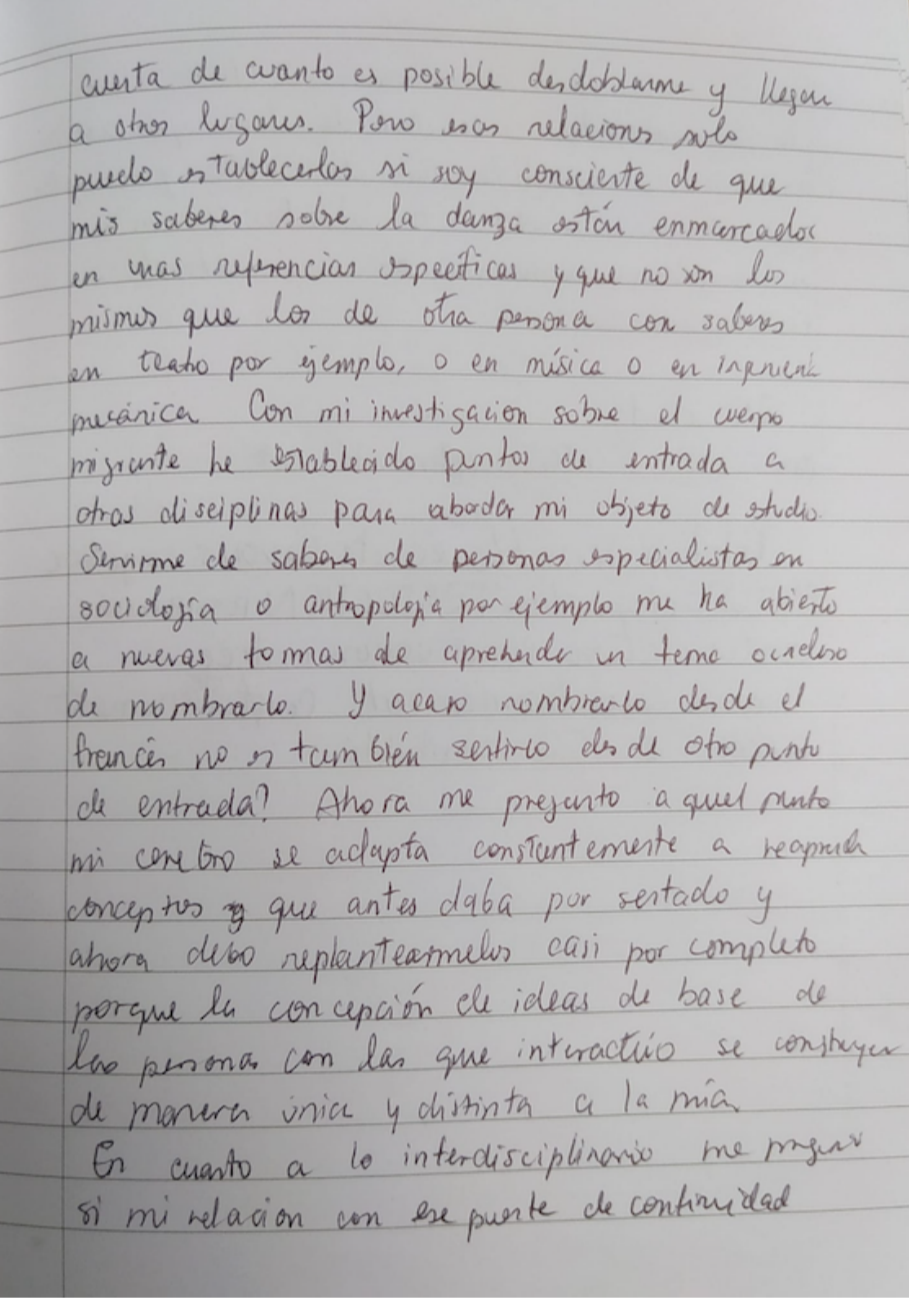 cuenta de cuanto es posible desdoblarme y llegar
a otros lugares. Pero esas relaciones solo
puedo establecerlas si soy consciente de que
mis saberes sobre la danza están enmarcados
en unas referencias específicas y que no son los
mismos que los de otra persona con saberes
en teatro por ejemplo, o en música o en ingeniería
mecánica. Con mi investigacion sobre el cuerpo
migrante he establecido puntos de entrada a
otras disciplinas para abordar mi objeto de estudio.
Servirme de saberes de personas especialistas en
sociología o antropología por ejemplo me ha abierto
a nuevas formas de aprehender un tema o incluso
de nombrarlo. Y acaso nombrarlo desde el
francés no es también sentirlo desde otro punto
de entrada? Ahora me pregunto a quel punto
mi cerebro se adapta constantemente a reaprender
conceptos que antes daba por sentado y
ahora debo replanteármelos casi por completo
porque la concepción de ideas de base de
las personas con las que interactúo se construyen
de manera única y distinta a la mía.
En cuanto a lo interdisciplinario me
si mi relacion con ese puente de continuidad